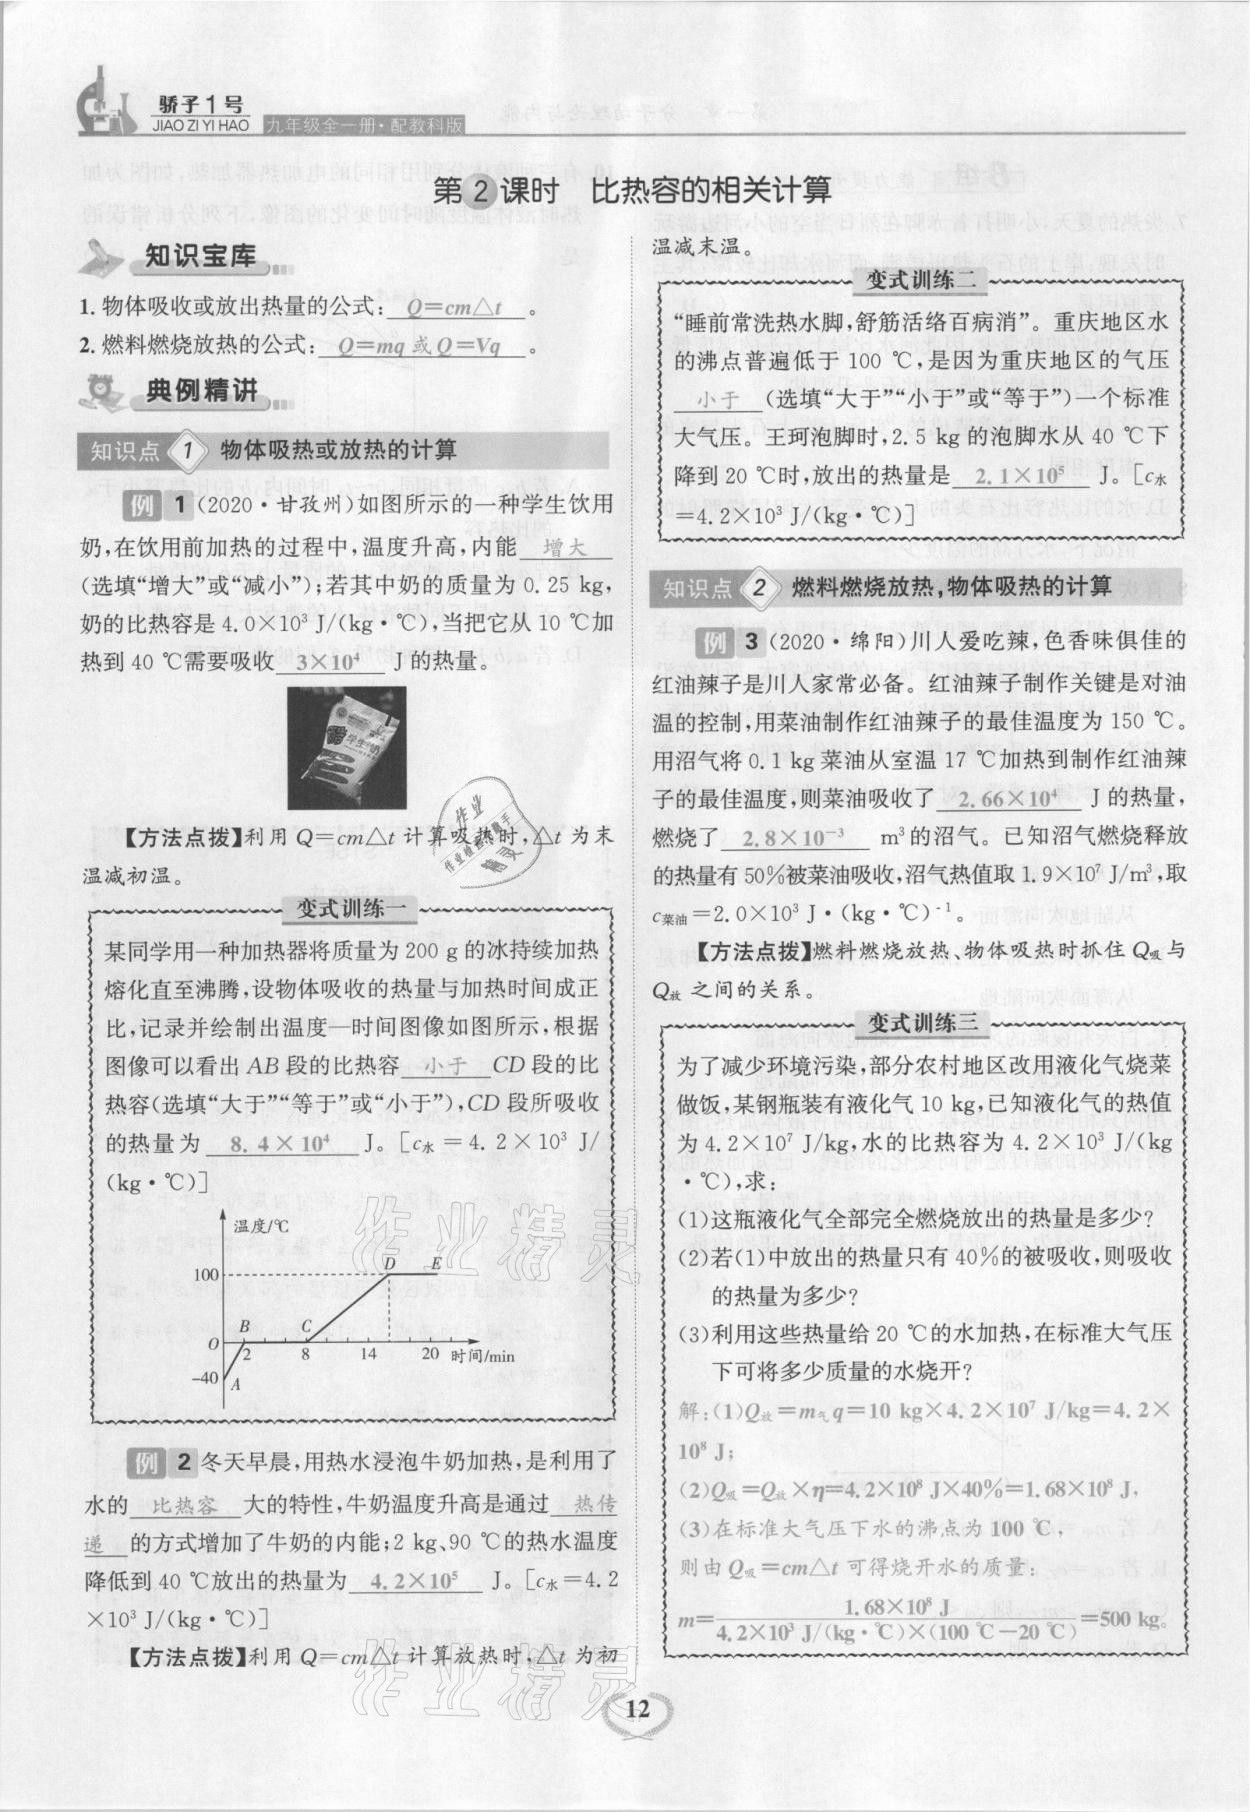 骄子1号
JIAO ZI YI HAO
九年级全一册·配教科版
第2课时 比热容的相关计算
知识宝库
1. 物体吸收或放出热量的公式: Q=cm△t 。
2. 燃料燃烧放热的公式: Q=mq 或 Q=Vq 。
典例精讲
知识点 1 物体吸热或放热的计算
例 1 (2020·甘孜州)如图所示的一种学生饮用
奶,在饮用前加热的过程中,温度升高,内能 增大
(选填“增大”或“减小”);若其中奶的质量为 0.25 kg,
奶的比热容是 4.0×10³ J/(kg·℃),当把它从 10 ℃加
热到 40 ℃需要吸收 3×10⁴ J 的热量。
【方法点拨】利用 Q=cm△t 计算吸热时,△t 为末
温减初温。
变式训练一
某同学用一种加热器将质量为 200 g 的冰持续加热
熔化直至沸腾,设物体吸收的热量与加热时间成正
比,记录并绘制出温度—时间图像如图所示,根据
图像可以看出 AB 段的比热容 小于 CD 段的比
热容(选填“大于”“等于”或“小于”),CD 段所吸收
的热量为 8.4×10⁴ J。[c水=4.2×10³ J/
(kg·℃)]
温度/℃
100
D E
B C
O 2 8 14 20 时间/min
-40 A
例 2 冬天早晨,用热水浸泡牛奶加热,是利用了
水的 比热容 大的特性,牛奶温度升高是通过 热传
递 的方式增加了牛奶的内能;2 kg、90 ℃的热水温度
降低到 40 ℃放出的热量为 4.2×10⁵ J。[c水=4.2
×10³ J/(kg·℃)]
【方法点拨】利用 Q=cm△t 计算放热时,△t 为初
温减末温。
变式训练二
“睡前常洗热水脚,舒筋活络百病消”。重庆地区水
的沸点普遍低于 100 ℃,是因为重庆地区的气压
小于 (选填“大于”“小于”或“等于”)一个标准
大气压。王珂泡脚时,2.5 kg 的泡脚水从 40 ℃下
降到 20 ℃时,放出的热量是 2.1×10⁵ J。[c水
=4.2×10³ J/(kg·℃)]
知识点 2 燃料燃烧放热,物体吸热的计算
例 3 (2020·绵阳)川人爱吃辣,色香味俱佳的
红油辣子是川人家常必备。红油辣子制作关键是对油
温的控制,用菜油制作红油辣子的最佳温度为 150 ℃。
用沼气将 0.1 kg 菜油从室温 17 ℃加热到制作红油辣
子的最佳温度,则菜油吸收了 2.66×10⁴ J 的热量,
燃烧了 2.8×10⁻³ m³ 的沼气。已知沼气燃烧释放
的热量有 50%被菜油吸收,沼气热值取 1.9×10⁷ J/m³,取
c菜油=2.0×10³ J·(kg·℃)⁻¹。
【方法点拨】燃料燃烧放热、物体吸热时抓住 Q吸 与
Q放 之间的关系。
变式训练三
为了减少环境污染,部分农村地区改用液化气烧菜
做饭,某钢瓶装有液化气 10 kg,已知液化气的热值
为 4.2×10⁷ J/kg,水的比热容为 4.2×10³ J/(kg
·℃),求:
(1)这瓶液化气全部完全燃烧放出的热量是多少?
(2)若(1)中放出的热量只有 40%的被吸收,则吸收
的热量为多少?
(3)利用这些热量给 20 ℃的水加热,在标准大气压
下可将多少质量的水烧开?
解:(1)Q放=m气q=10 kg×4.2×10⁷ J/kg=4.2×
10⁸ J;
(2)Q吸=Q放×η=4.2×10⁸ J×40%=1.68×10⁸ J,
(3)在标准大气压下水的沸点为 100 ℃,
则由 Q吸=cm△t 可得烧开水的质量:
m=1.68×10⁸ J/4.2×10³ J/(kg·℃)×(100 ℃-20 ℃)=500 kg。
12
作业精灵
作业精灵
作业
作业检查小助手
精灵